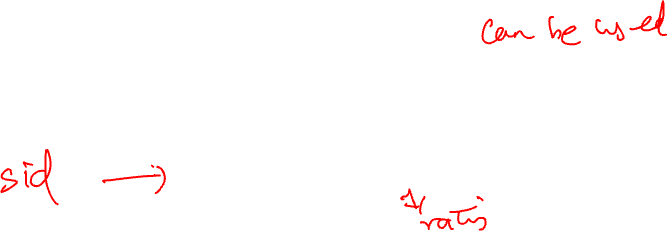 can be used
sid →
ratis